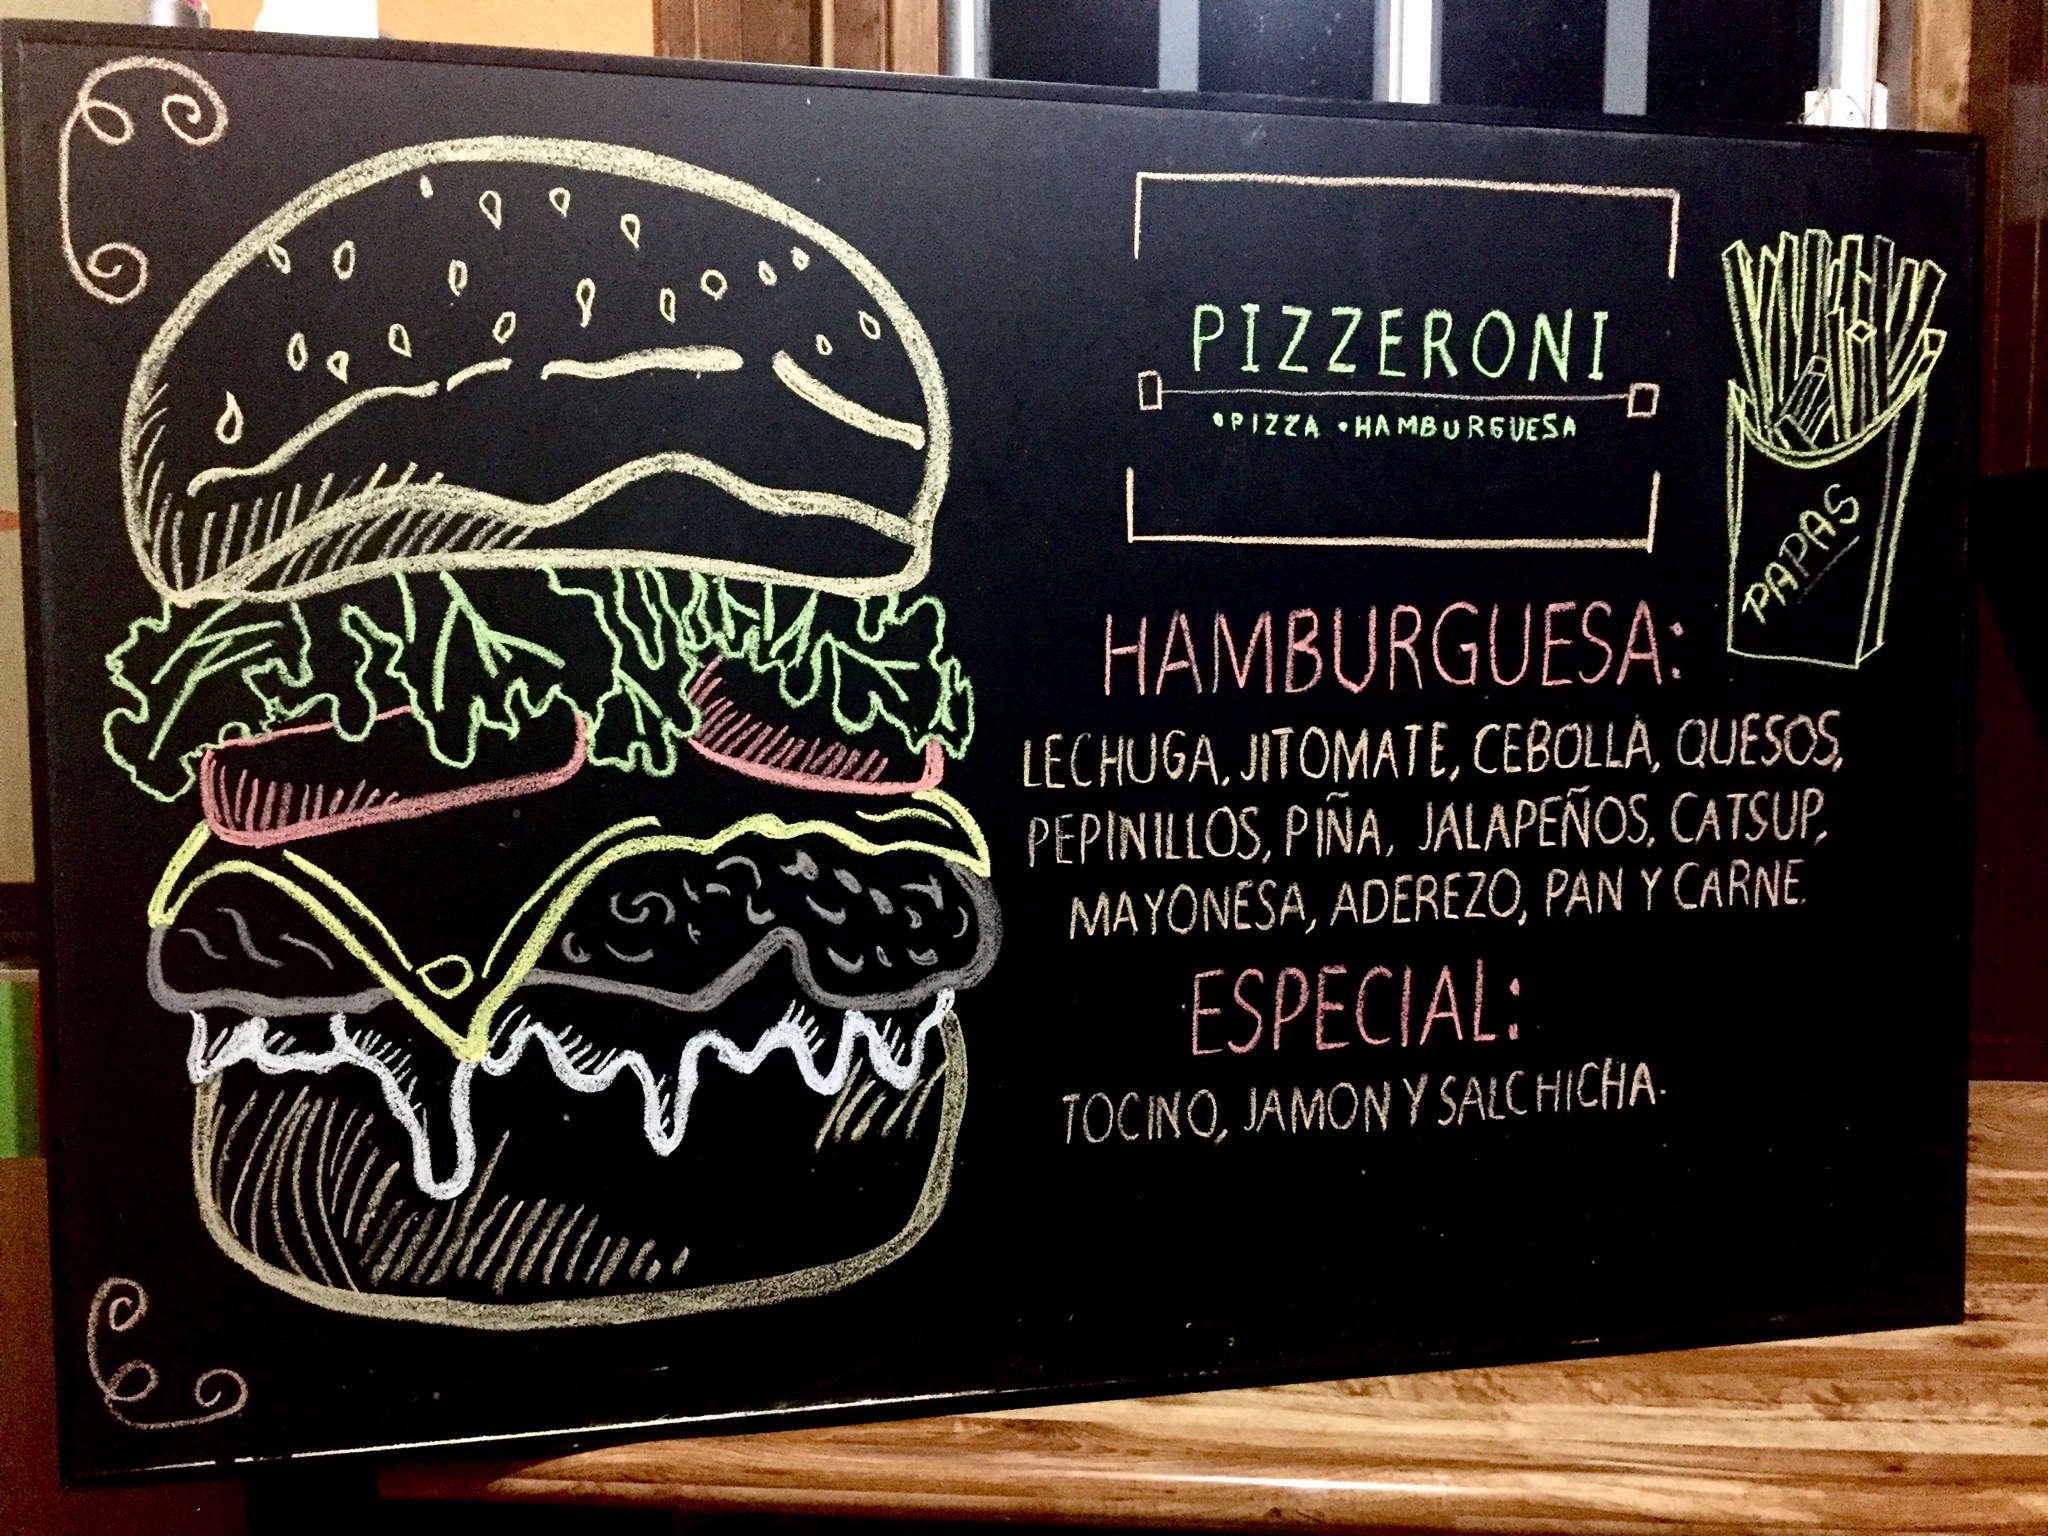 PIZZERONI
•PIZZA •HAMBURGUESA
PAPAS
HAMBURGUESA:
LECHUGA, JITOMATE, CEBOLLA, QUESOS,
PEPINILLOS, PIÑA, JALAPEÑOS, CATSUP,
MAYONESA, ADEREZO, PAN Y CARNE.
ESPECIAL:
TOCINO, JAMON Y SALCHICHA.